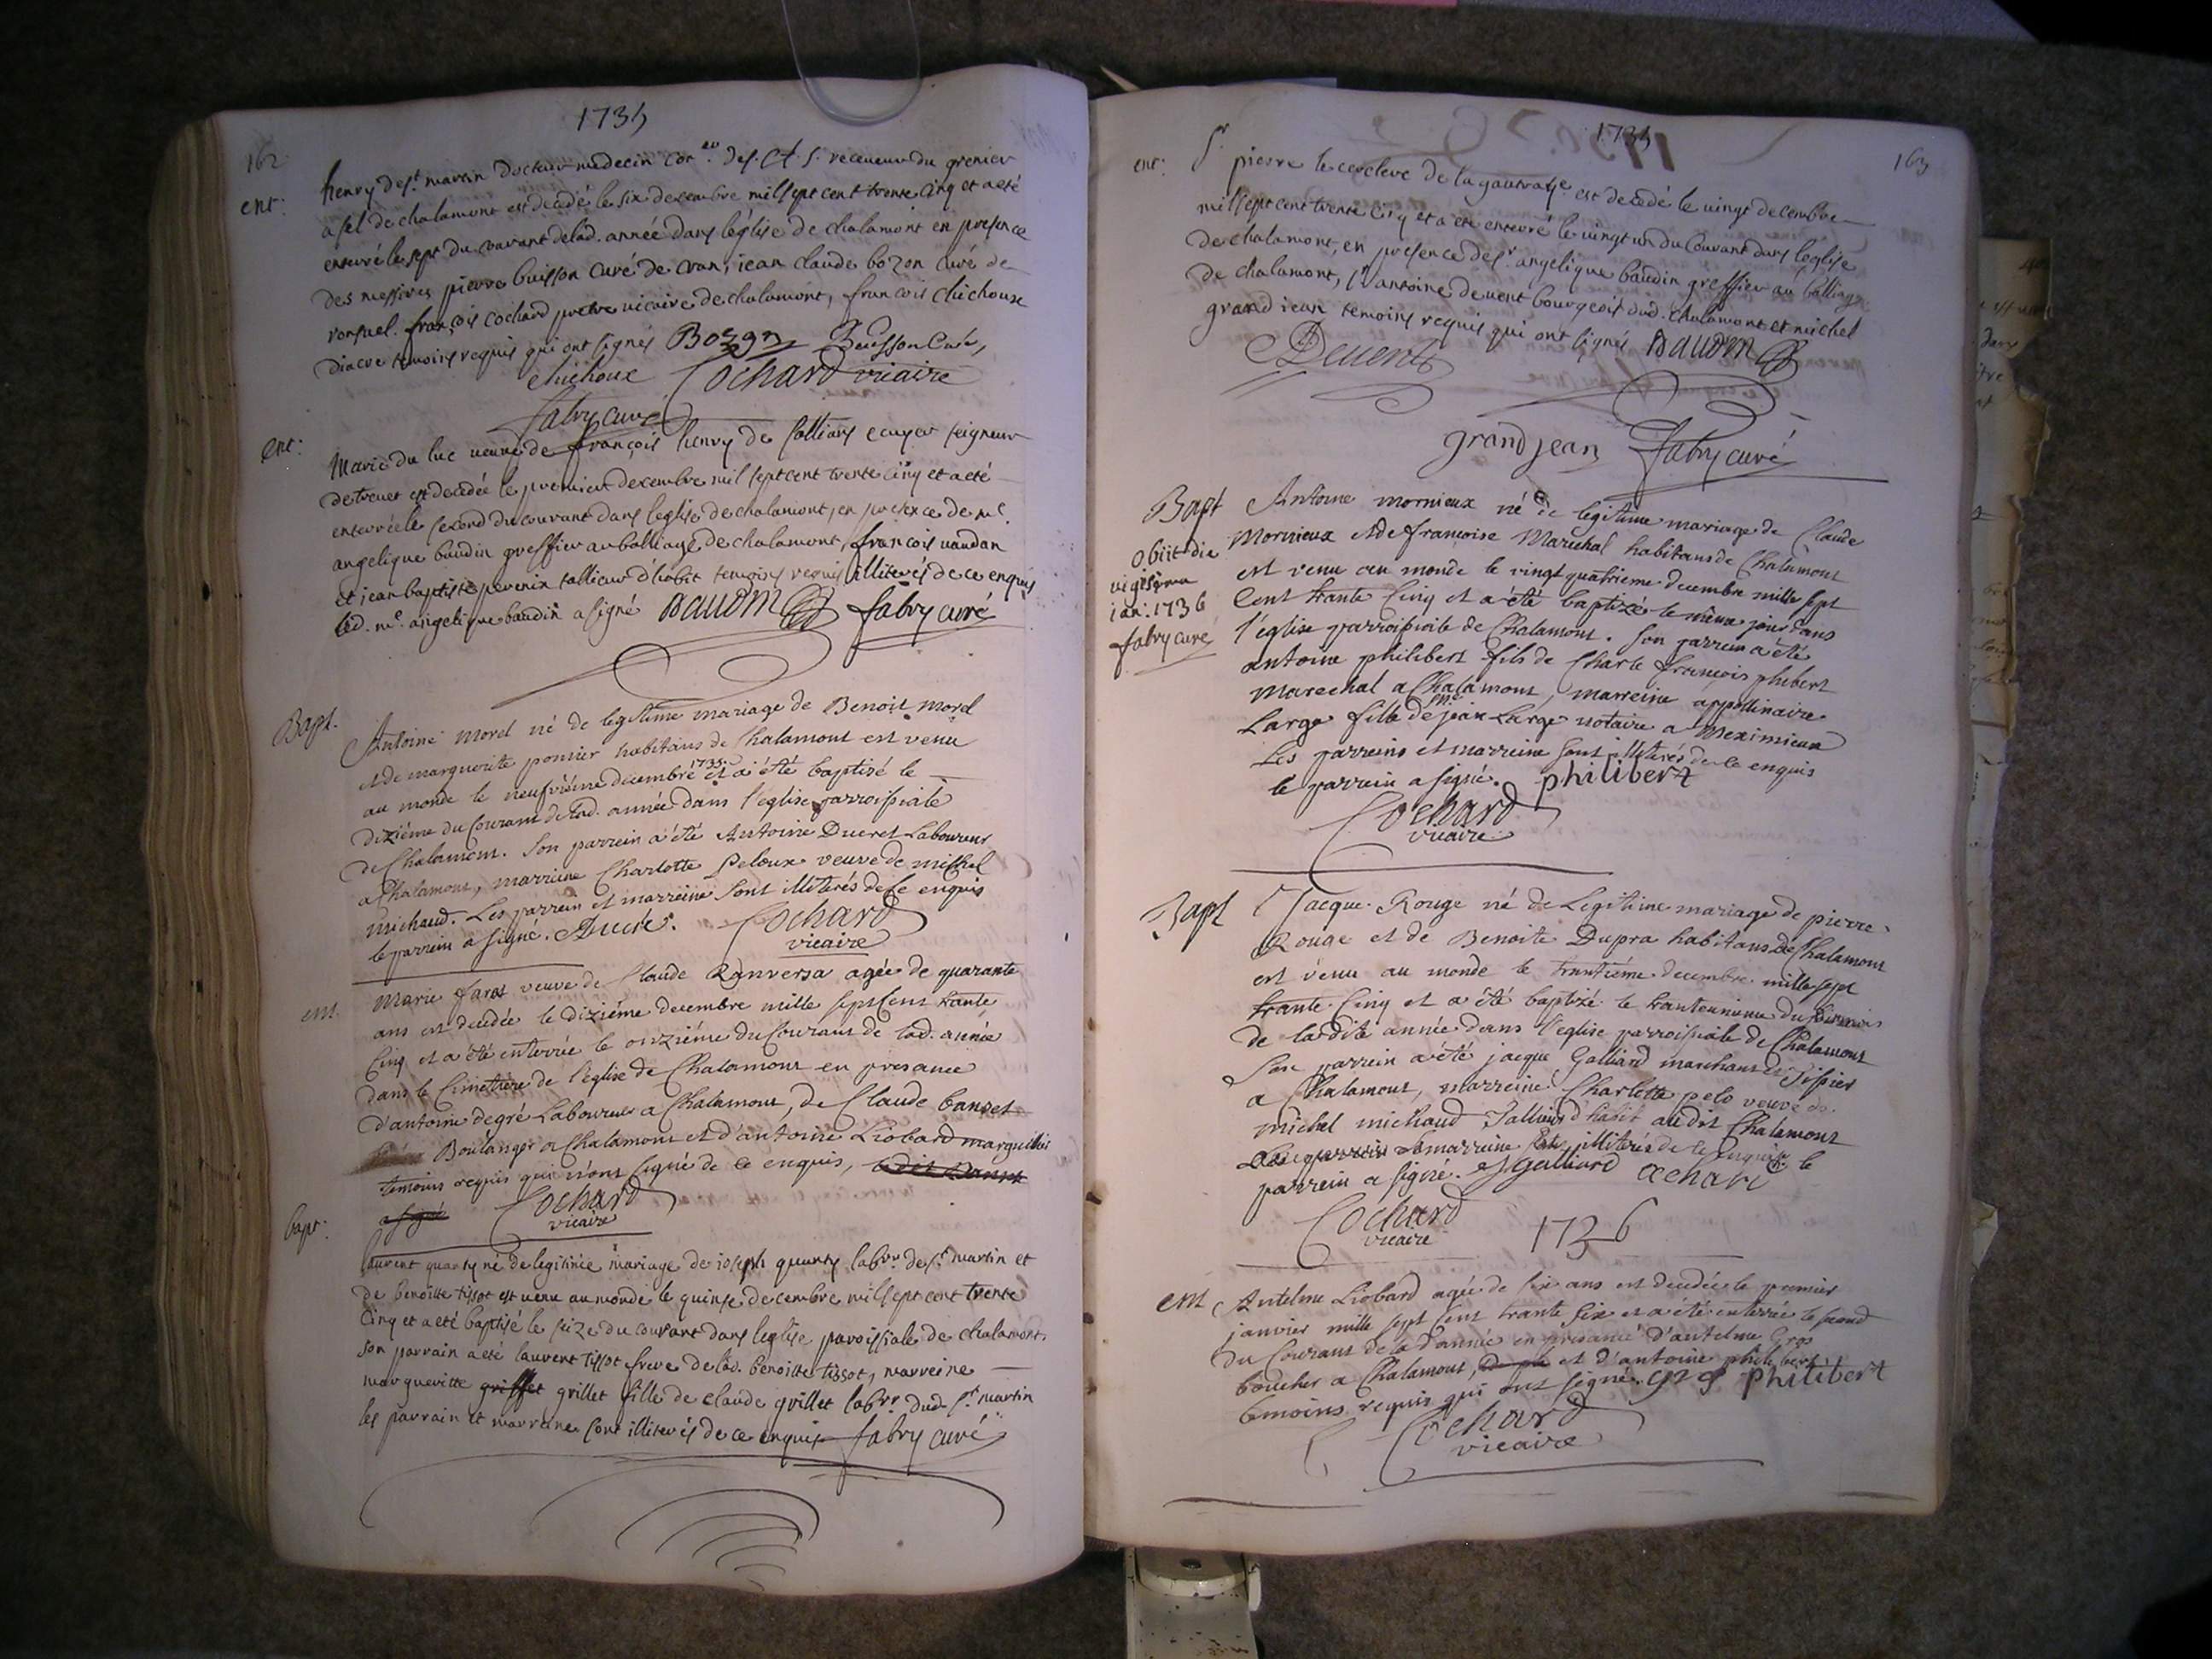 1735
162
ent:
henry de s.t martin docteur medecin con.er des. et. s. receveur du grenier
a sel de chalamont est decedé le six decembre mil sept cent trente cinq et a eté
enterré le sept du courant de lad. année dans léglise de chalamont en presence
des messires pierre buisson curé de cran, jean claude bozon curé de
ronsuel. françois cochard pretre vicaire de chalamont, francois chichoux
diacre temoins requis qui ont signés Bozon Buisson Curé,
chichoux Cochard vicaire
fabry curé
ent:
Marie du luc veuve de françois henry de saillans ecuyer seigneur
de est decedée le premier decembre mil sept cent trente cinq et a eté
enterrée le second du courant dans leglise de chalamont, en presence de m.e
angelique baudin greffier au balliage de chalamont, francois vaudan
et jean baptiste tallieur d'habit temoins requis illiterés de ce enquis
led. m.e angelique baudin a signé Baudin fabry curé
Bapt.
Antoine morel né de legitime mariage de Benoit morel
et de marguerite ponier habitans de Chalamont est venu
au monde le neufviéme decembre 1735. et a été baptisé le
diziéme du Courant de lad. année dans l'eglise parroissiale
de Chalamont. Son parrein a été Antoine Ducret Laboureur
a Chalamont, marreine Charlotte Peloux veuve de michel
michaud. Les parrein et marreine sont illiterés de ce enquis
le parrein a signé. Ducré. Cochard
vicaire
ent.
Marie farat veuve de Claude Ranversa agée de quarante
ans est decedée le diziéme decembre mille sept Cent trante
Cinq et a été enterrée le onziéme du Courant de lad. année
dans le Cimetiere de l'église de Chalamont en presance
d'antoine degré Laboureur a Chalamont, de Claude banset
Boulanger a Chalamont et d'antoine Liobard marguillier
temoins requis qui n'ont signé de ce enquis, ledit Banset
a signé Cochard
vicaire
bapt:
laurent quarty né de legitimé mariage de joseph quarty lab.r de s.t martin et
de benoitte tissot est venu au monde le quinse decembre mil sept cent trente
cinq et a eté baptisé le seize du courant dans leglise paroissiale de chalamont.
son parrain a eté laurent tissot frere de lad. benoitte tissot, marreine
marguerite griffet grillet fille de claude grillet lab.r dud. s.t martin
les parrain et marreine sont illiterés de ce enquis fabry curé
1735
163
ent:
S.r pierre le de la est decedé le vingt decembre
mil sept cent trente cinq et a eté enterré le vingt un du courant dans léglise
de chalamont, en presence de s.r angelique baudin greffier au balliage
de chalamont, s.r antoine devent bourgeois dud. chalamont et michel
grand jean temoins requis qui ont signés Baudin
Devent
grand jean fabry curé
Bapt
Obiit die
vigesima
jan: 1736
fabry curé
Antoine mornieux né de legitime mariage de Claude
Mornieux et de francoise Marechal habitans de Chalamont
est venu au monde le vingt quatrieme decembre mille sept
Cent trante Cinq et a été baptizé le même jour dans
l'eglise parroissiale de Chalamont. Son parrein a été
antoine philibert fils de Charle francois philibert
Marechal a Chalamont, marreine appollinaire
Large fille de m.e jean Large notaire a Meximieux
Les parreins et marreine sont illiterés de ce enquis
le parrein a signé. philibert
Cochard
vicaire
Bapt
Jacque Rouge né de Legitime mariage de pierre
Rouge et de Benoite Dupra habitans de Chalamont
est venu au monde le trantiéme decembre mille sept
trante Cinq et a été baptizé le trante unieme du
de la dite année dans l'eglise parroissiale de Chalamont
Son parrein a été jacque Galliard marchand
a Chalamont, marreine Charlotte pelo veuve de
michel michaud Tallieur d'habit au dit Chalamont
Les parrein La marreine est illiterés de ce enquise le
parrein a signé. J Galliard achard
Cochard
vicaire
1736
ent
Antelme Liobard agée de six ans est decedée le premier
janvier mille sept Cent trante six et a été enterrée le second
du Courant de la d. année en presance d'antelme Gros
boucher a Chalamont, et d'antoine philibert
temoins requis qui ont signé. gros philibert
Cochard
vicaire